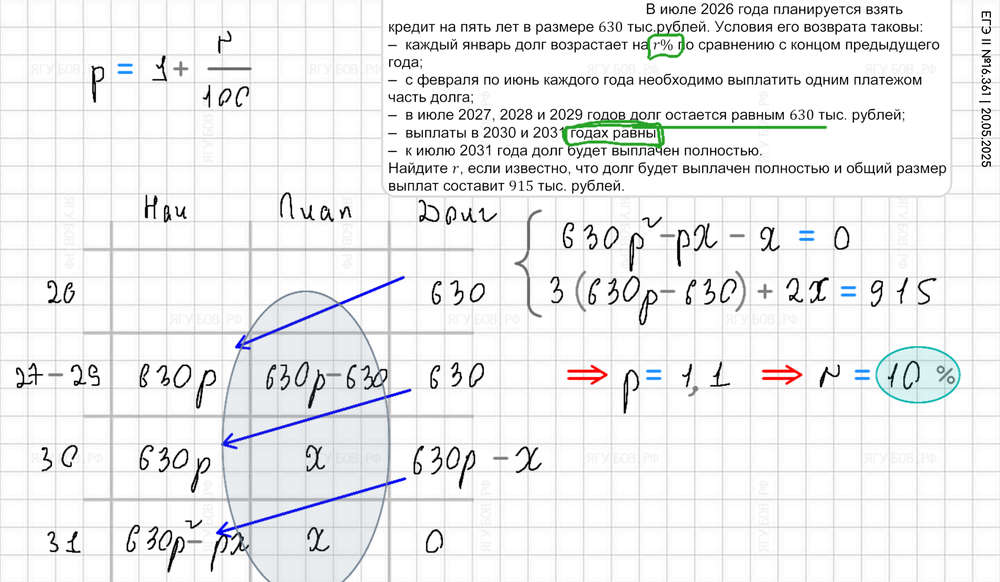 В июле 2026 года планируется взять
кредит на пять лет в размере 630 тыс.рублей. Условия его возврата таковы:
– каждый январь долг возрастает на r% по сравнению с концом предыдущего
года;
– с февраля по июнь каждого года необходимо выплатить одним платежом
часть долга;
– в июле 2027, 2028 и 2029 годов долг остается равным 630 тыс. рублей;
– выплаты в 2030 и 2031 годах равны
– к июлю 2031 года долг будет выплачен полностью.
Найдите r, если известно, что долг будет выплачен полностью и общий размер
выплат составит 915 тыс. рублей.
ЕГЭ II №16.361 | 20.05.2025
p = 1 + r/100
Нач Плат Долг
26 630
27 – 29 630p 630p – 630 630
30 630p x 630p – x
31 630p² – px x 0
630p² – px – x = 0
3 (630p – 630) + 2x = 915
⇒ p = 1,1 ⇒ r = 10 %
ЯГУБОВ.РФ